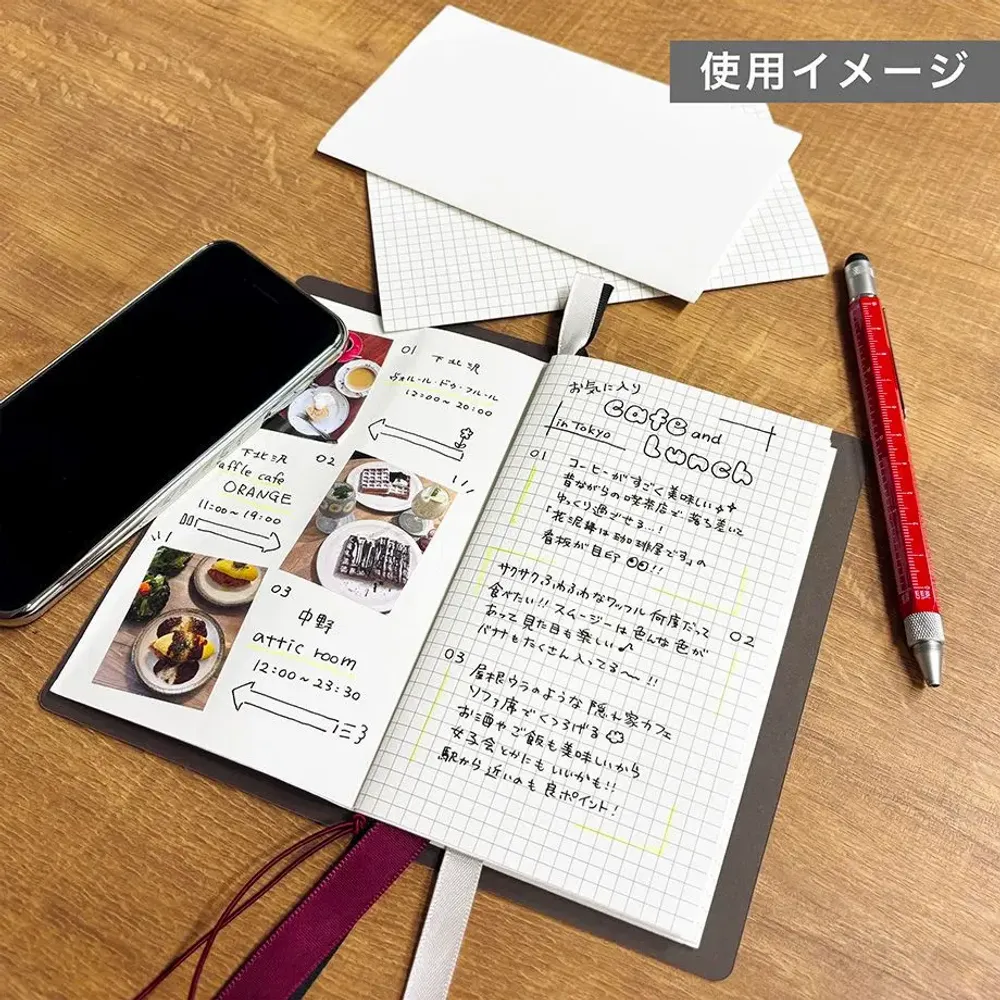 使用イメージ
01 下北沢
ヴォルール・ドゥ・フルール
12:00~20:00
下北沢 02
affle cafe
ORANGE
11:00~19:00
03
中野
attic room
12:00~23:30
お気に入り
cafe and
in Tokyo
Lunch
01
コーヒーがすごく美味しい
昔ながらの喫茶店で落ち着いて
ゆっくり過ごせる…!
「花泥棒は珈琲屋です」の
看板が目印!!
サクサクふわふわなワッフル何度だって
食べたい!! スムージーは色んな色が 02
あって見た目も楽しい♪
バナナもたくさん入ってる〜!!
03
屋根ウラのような隠れ家カフェ
ソファ席でくつろげる
お酒やご飯も美味しいから
女子会とかにもいいかも!!
駅から近いのも良ポイント!